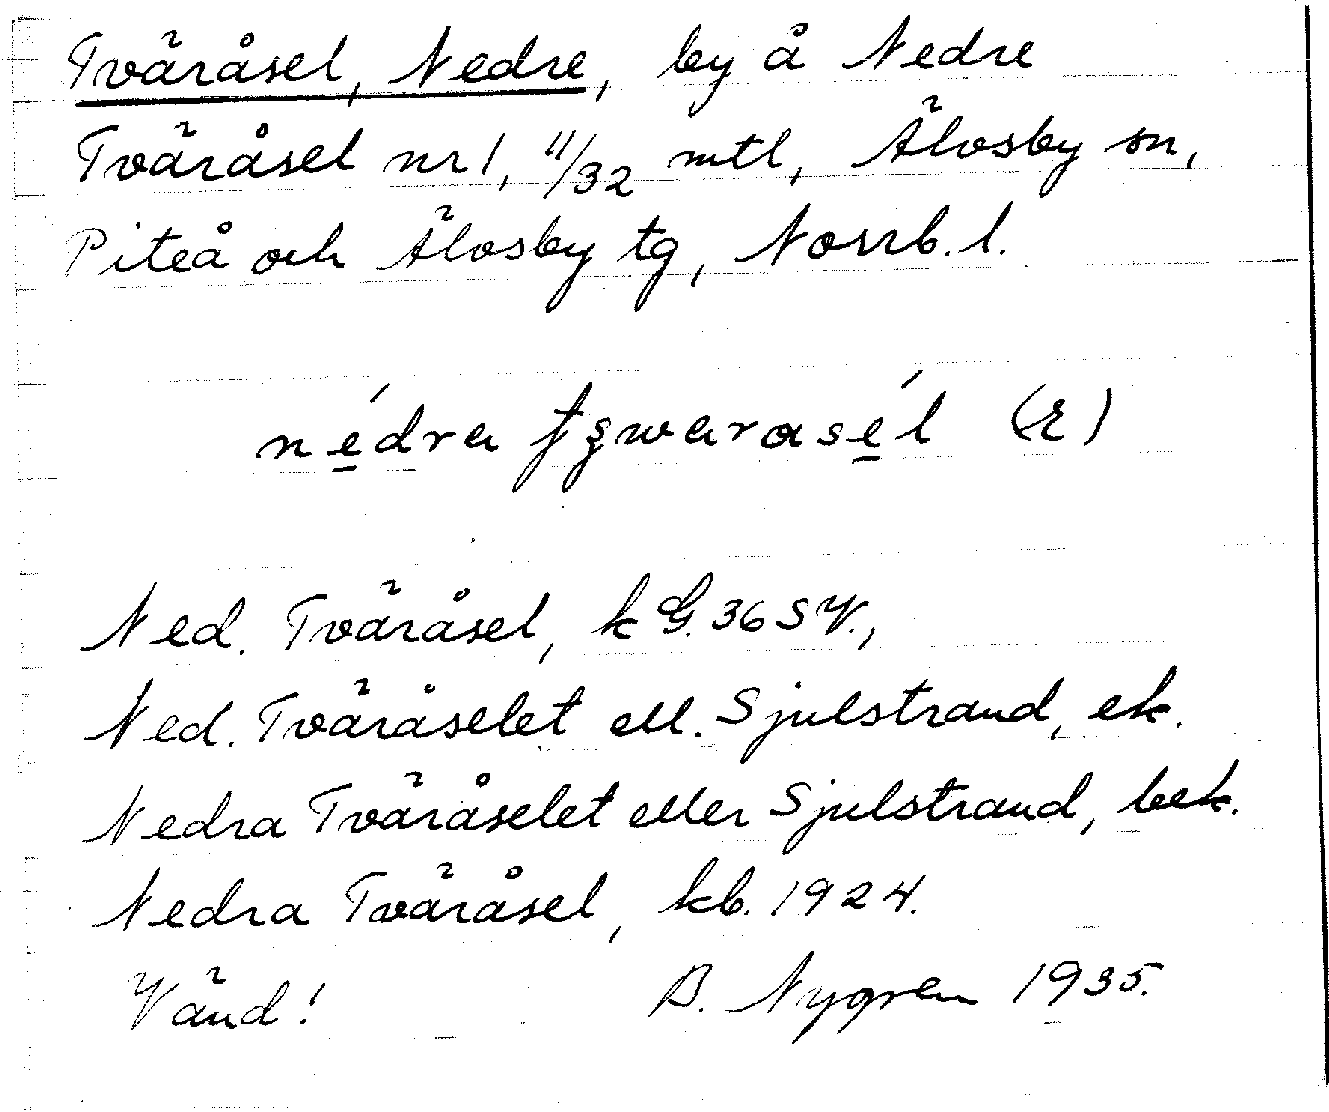 Tväråsel, Nedre, by å Nedre
Tväråsel nr 1, 11/32 mtl, Älvsby sn,
Piteå och Älvsby tg, Norrb. l.
nédra
Ned. Tväråsel, k G. 36 SV.,
Ned. Tväråselet ell. Sjulstrand, ek.
Nedra Tväråselet eller Sjulstrand, bek.
Nedra Tväråsel, kb. 1924.
Vänd! B. Nygren 1935.